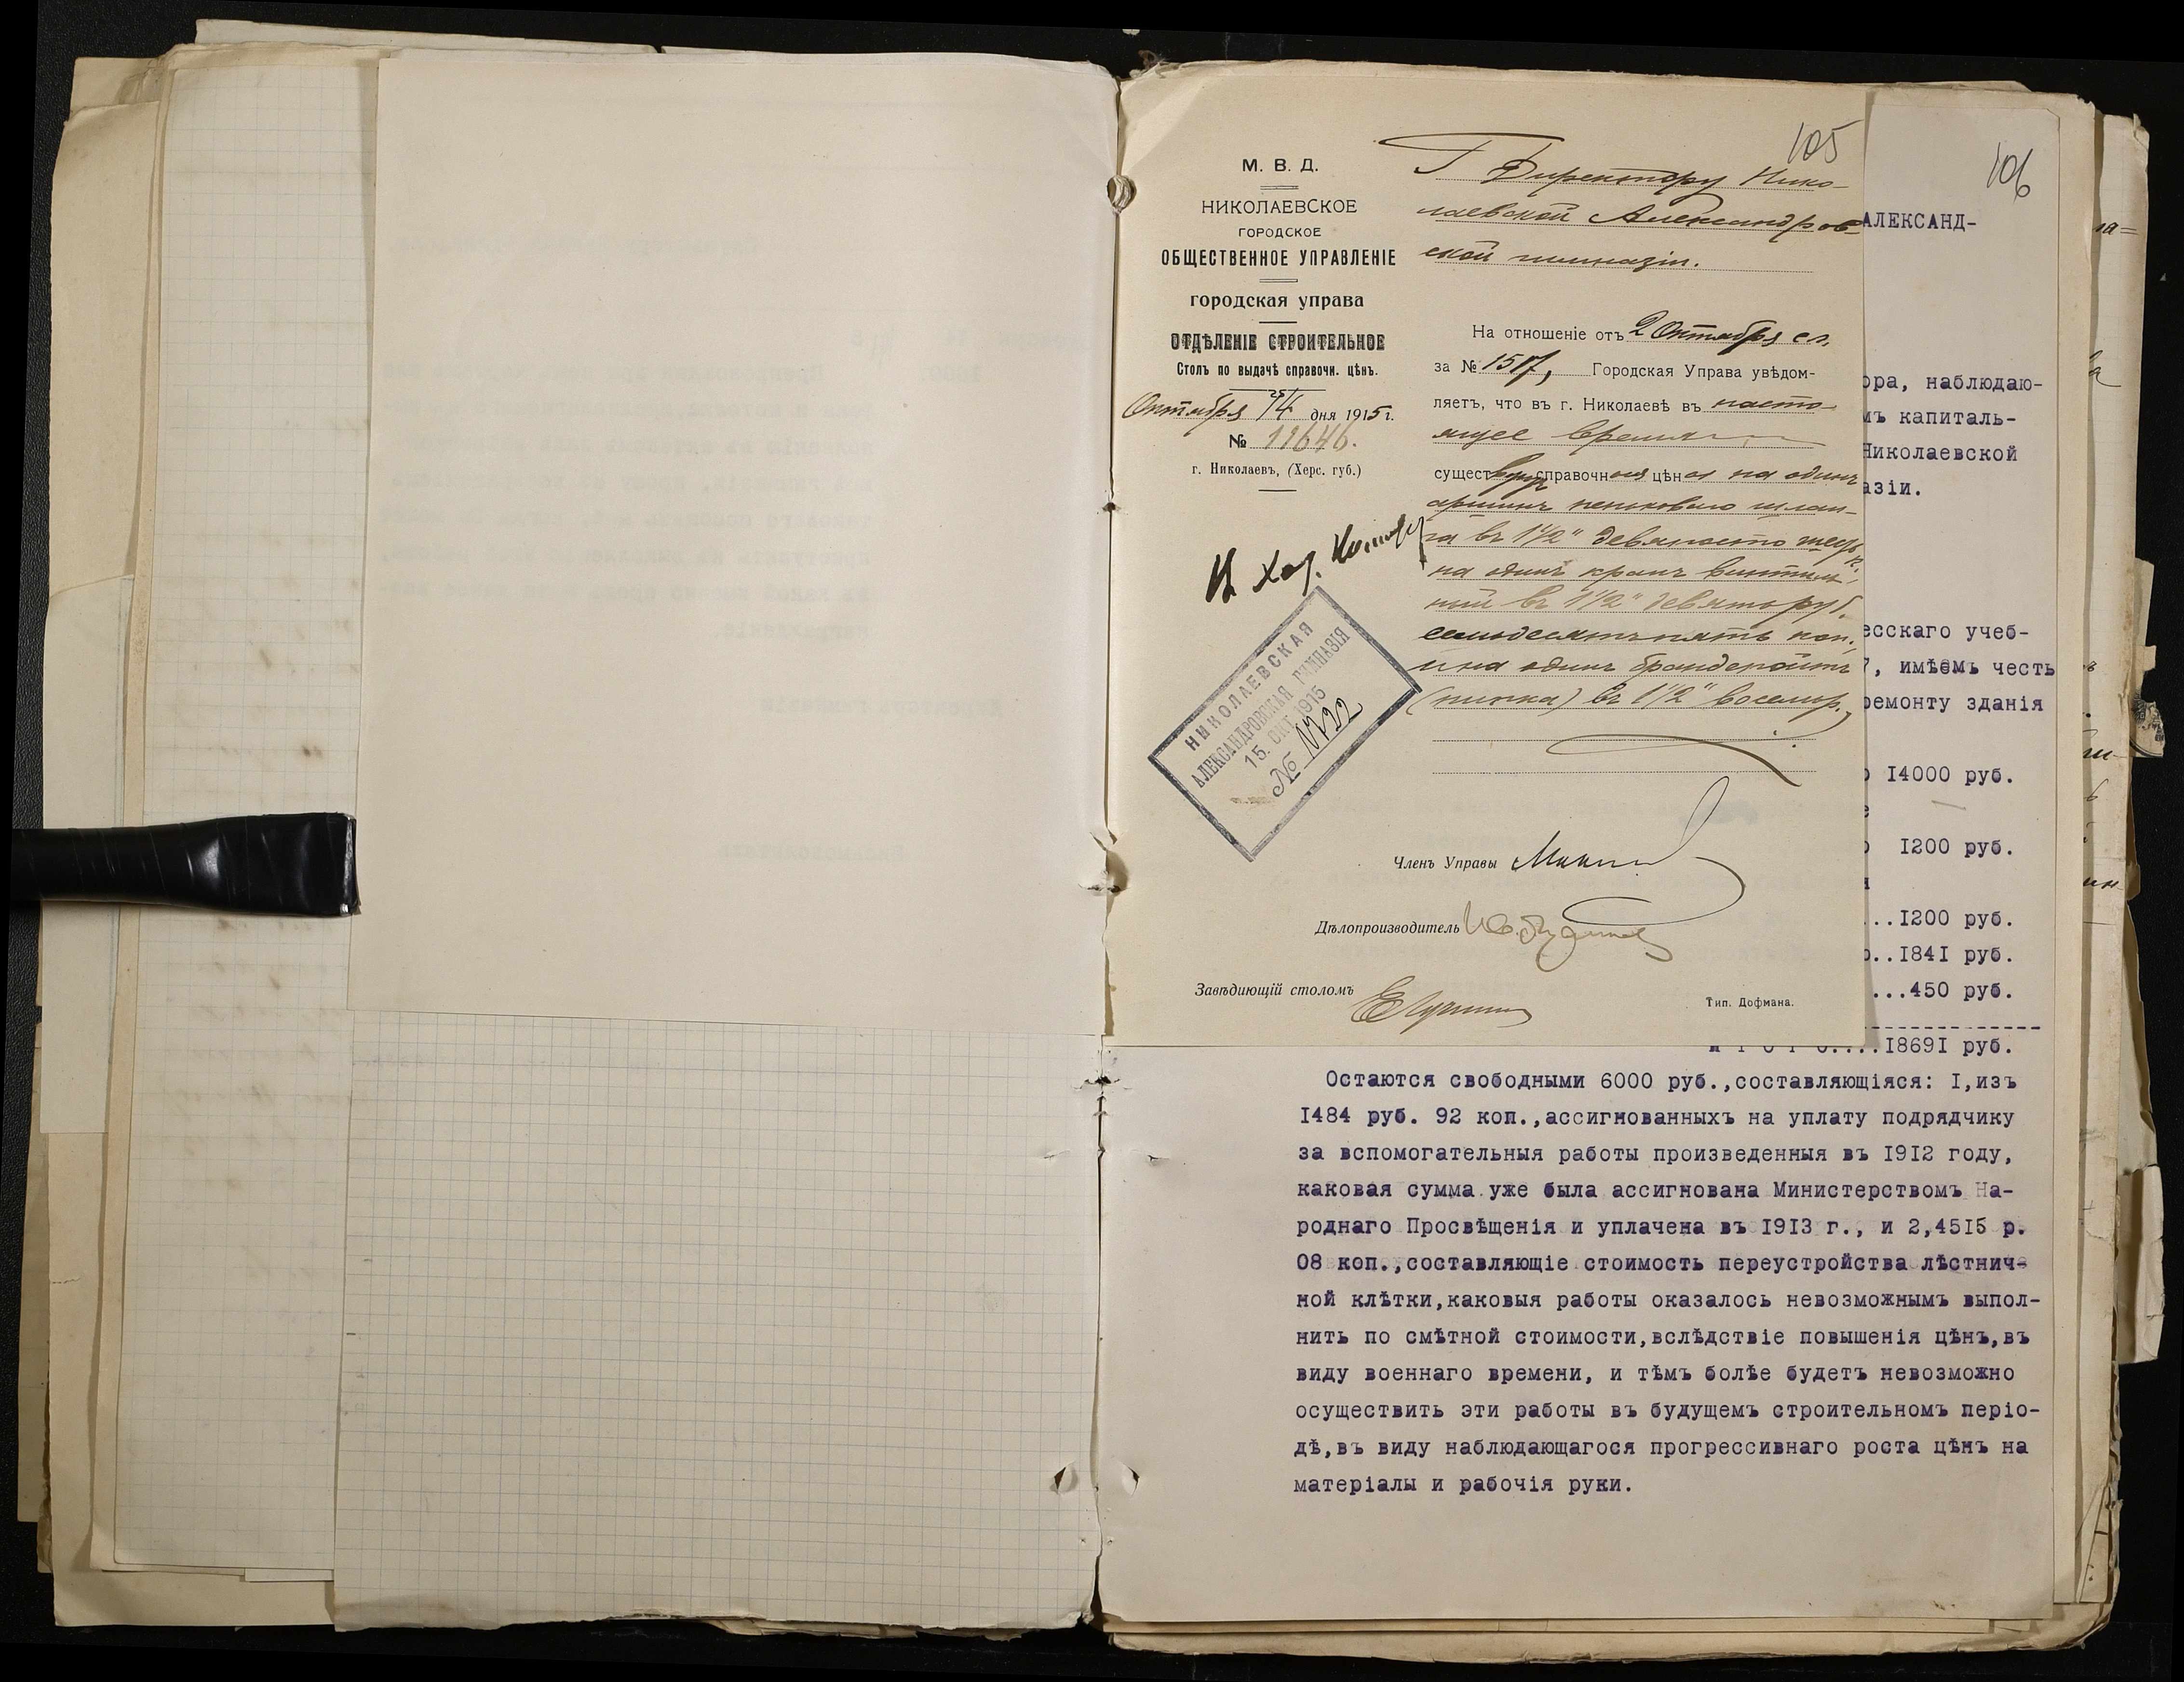 105
М. В. Д.
НИКОЛАЕВСКОЕ
ГОРОДСКОЕ
ОБЩЕСТВЕННОЕ УПРАВЛЕНІЕ
городская управа
ОТДѢЛЕНІЕ СТРОИТЕЛЬНОЕ
Столъ по выдачѣ справочн. цѣнъ.
Октября 14 дня 1915 г.
№ 11646.
г. Николаевъ, (Херс. губ.)
Г Директору Нико-
лаевской Александров-
ской гимназіи.
На отношеніе отъ 2 Октября с.г.
за № 1517, Городская Управа увѣдом-
ляетъ, что въ г. Николаевѣ въ насто-
ящее время
существ справочная цѣна на одинъ
аршинъ пеньковаго шлан-
га въ 1 1/2" девяносто
на одинъ кранъ вентиль-
ный въ 1 1/2" девять руб.
семьдесятъ пять коп.,
и на одинъ брандспойтъ
(пипка) въ 1 1/2" восемь р.
Къ Хоз.
НИКОЛАЕВСКАЯ
АЛЕКСАНДРОВСКАЯ ГИМНАЗІЯ
15. ОКТ. 1915
№ 1722
Членъ Управы
Дѣлопроизводитель
Завѣдиющій столомъ
Тип. Дофмана.
106
АЛЕКСАНД-
ора, наблюдаю-
мъ капиталь-
Николаевской
азіи.
есскаго учеб-
7, имѣемъ честь
ремонту зданія
14000 руб.
1200 руб.
...1200 руб.
...1841 руб.
...450 руб.
И Т О Г О....18691 руб.
Остаются свободными 6000 руб.,составляющіяся: I,изъ
1484 руб. 92 коп.,ассигнованныхъ на уплату подрядчику
за вспомогательныя работы произведенныя въ 1912 году,
каковая сумма уже была ассигнована Министерствомъ На-
роднаго Просвѣщенія и уплачена въ 1913 г., и 2,4515 р.
08 коп.,составляющіе стоимость переустройства лѣстнич-
ной клѣтки,каковыя работы оказалось невозможнымъ выпол-
нить по смѣтной стоимости,вслѣдствіе повышенія цѣнъ,въ
виду военнаго времени, и тѣмъ болѣе будетъ невозможно
осуществить эти работы въ будущемъ строительномъ періо-
дѣ,въ виду наблюдающагося прогрессивнаго роста цѣнъ на
матеріалы и рабочія руки.